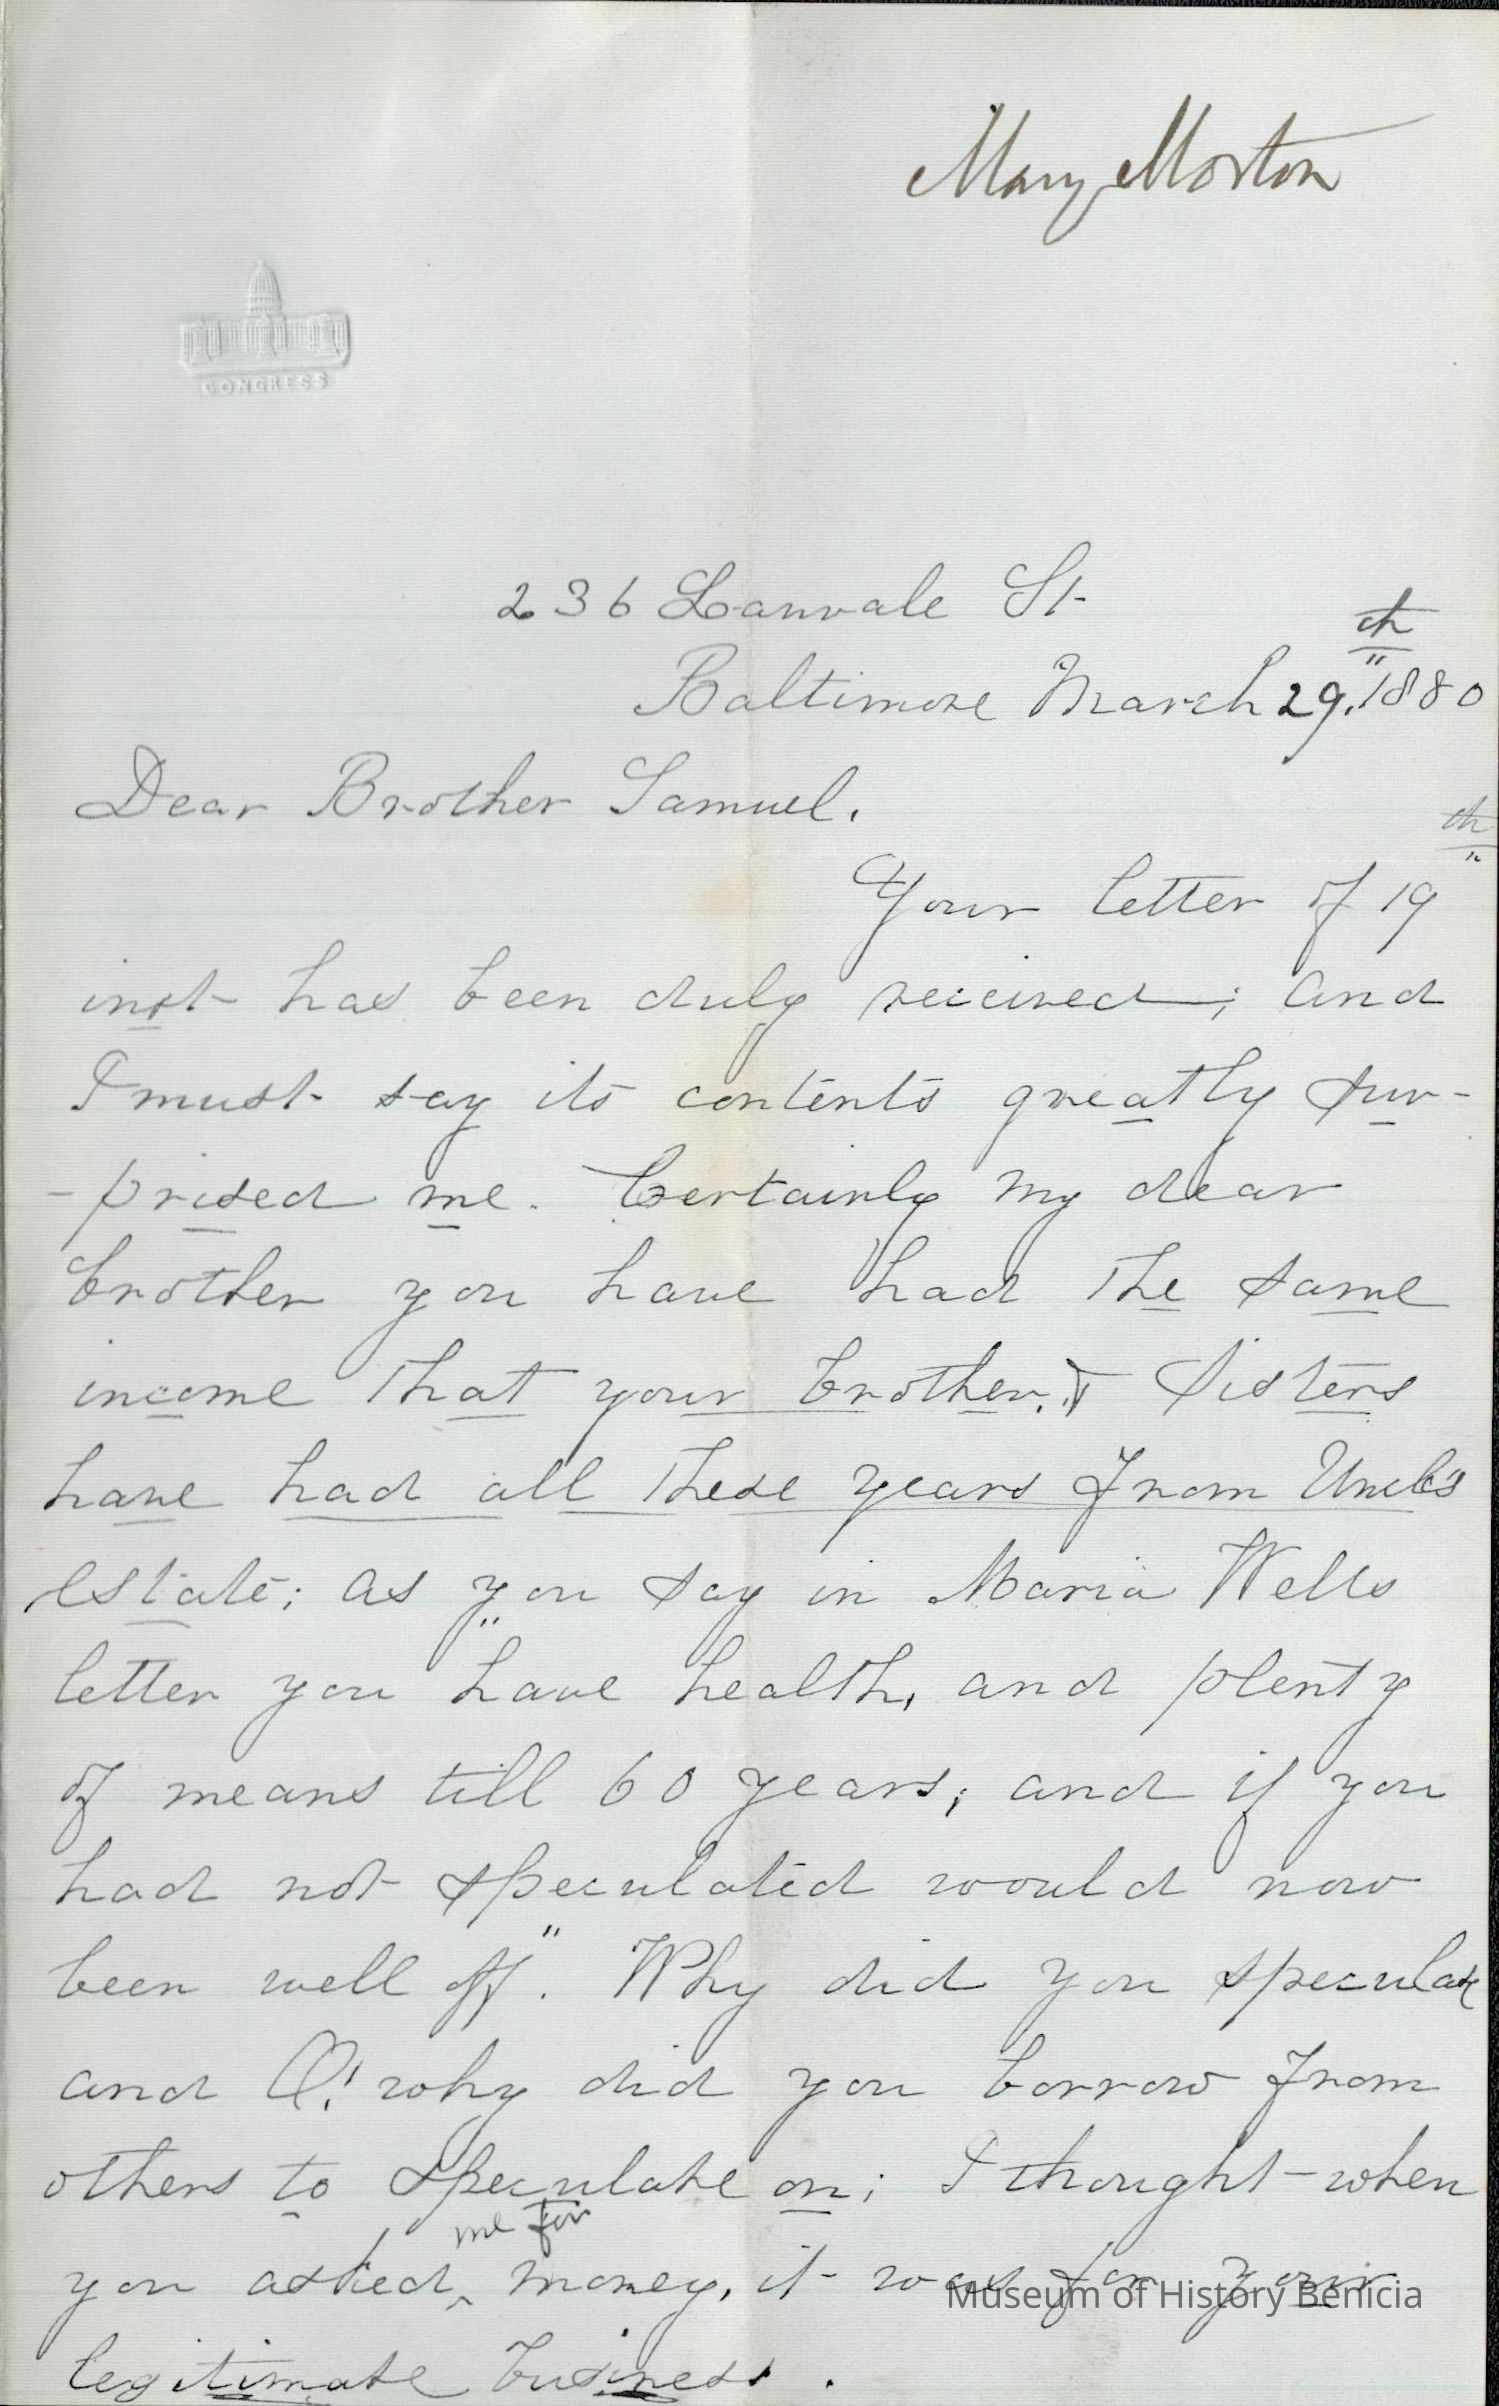 Mary Morton
CONGRESS
236 Lanvale St
Baltimore March 29th, 1880
Dear Brother Samuel.
Your letter of 19th
inst has been duly received; and
I must say its contents greatly sur-
-prised me. Certainly my dear
brother you have had the same
income that your brother, & Sisters
have had all these years from Uncle's
estate; as "you say in Maria Wells
letter you have health, and plenty
of means till 60 years; and if you
had not speculated would now
been well off". Why did you speculate
and O! why did you borrow from
others to speculate on; I thought when
you asked ^me for money, it was for your
legitimate business.
Museum of History Benicia